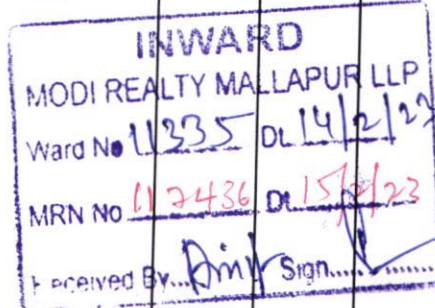 INWARD
MODI REALTY MALLAPUR LLP
Ward No 11335 Dt. 14/2/23
MRN No 117436 Dt. 15/2/23
Received By... Sign.............